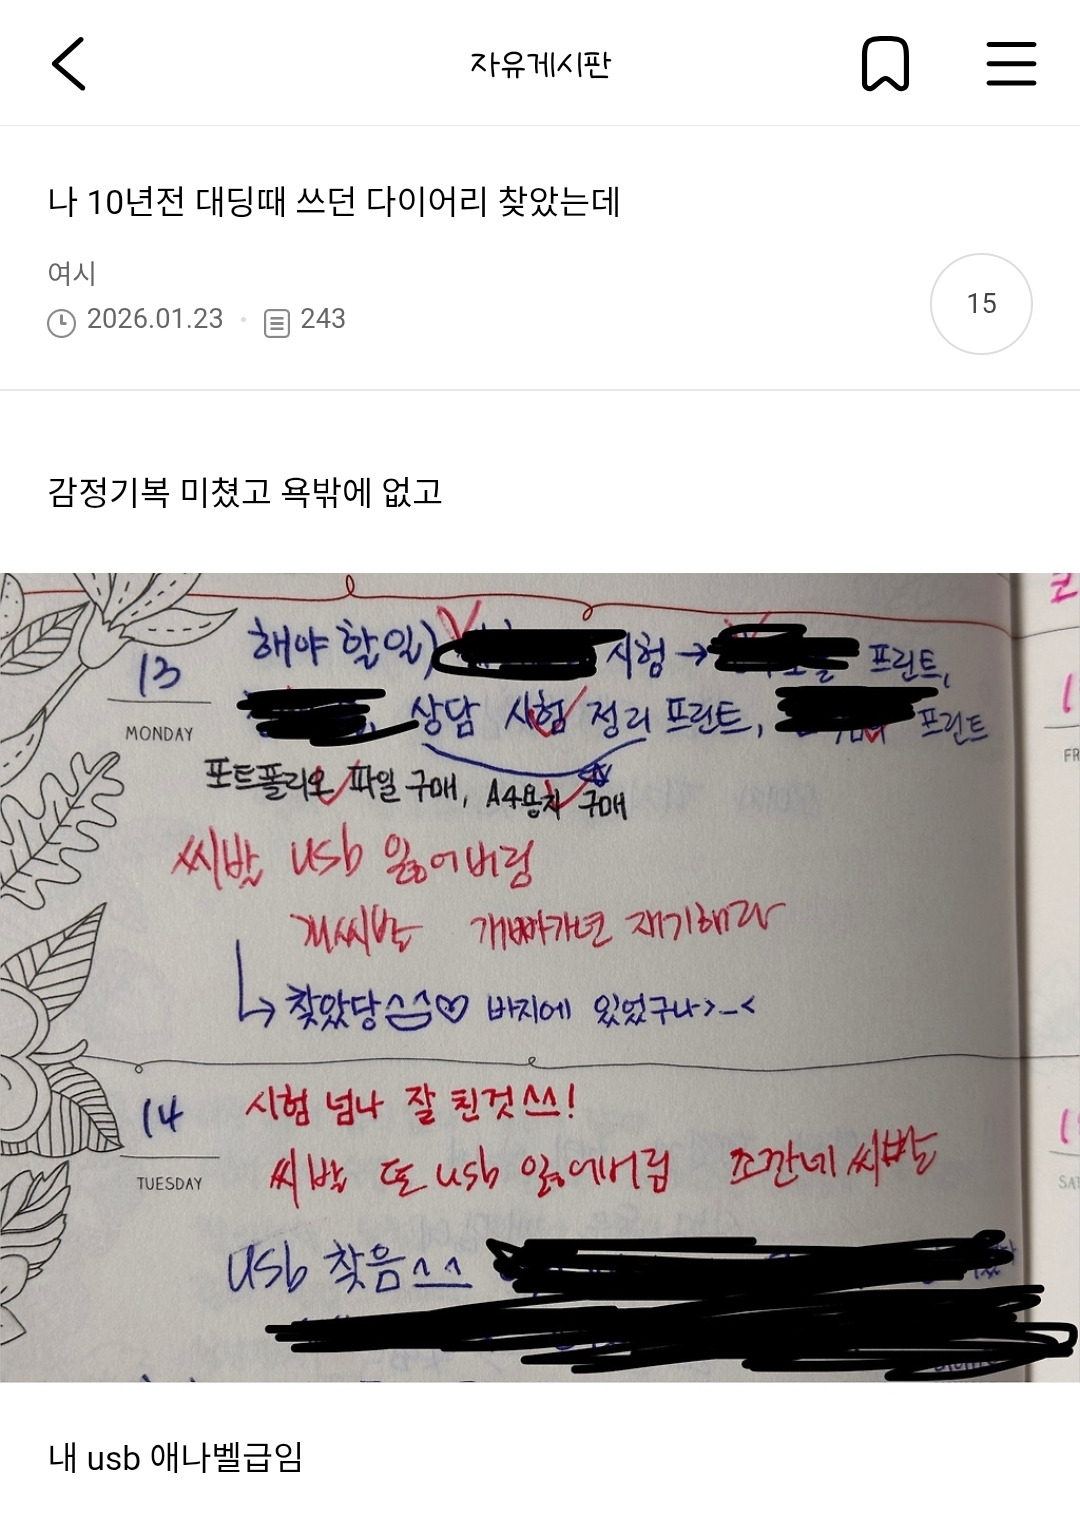 자유게시판
나 10년전 대딩때 쓰던 다이어리 찾았는데
여시
2026.01.23 · 243
15
감정기복 미쳤고 욕밖에 없고
13
MONDAY
해야 할 일) 시험 → 프린트,
상담 시험 정리 프린트, 프린트
포트폴리오 파일 구매, A4용지 구매
씨발 usb 잃어버렁
개씨발 개빠가년 재기해라
↳ 찾았당^^♡ 바지에 있었구나>_<
14
TUESDAY
시험 넘나 잘 친것^^!
씨발 또 usb 잃어버림 조깐네 씨빨
usb 찾음^^
FR
SAT
내 usb 애나벨급임